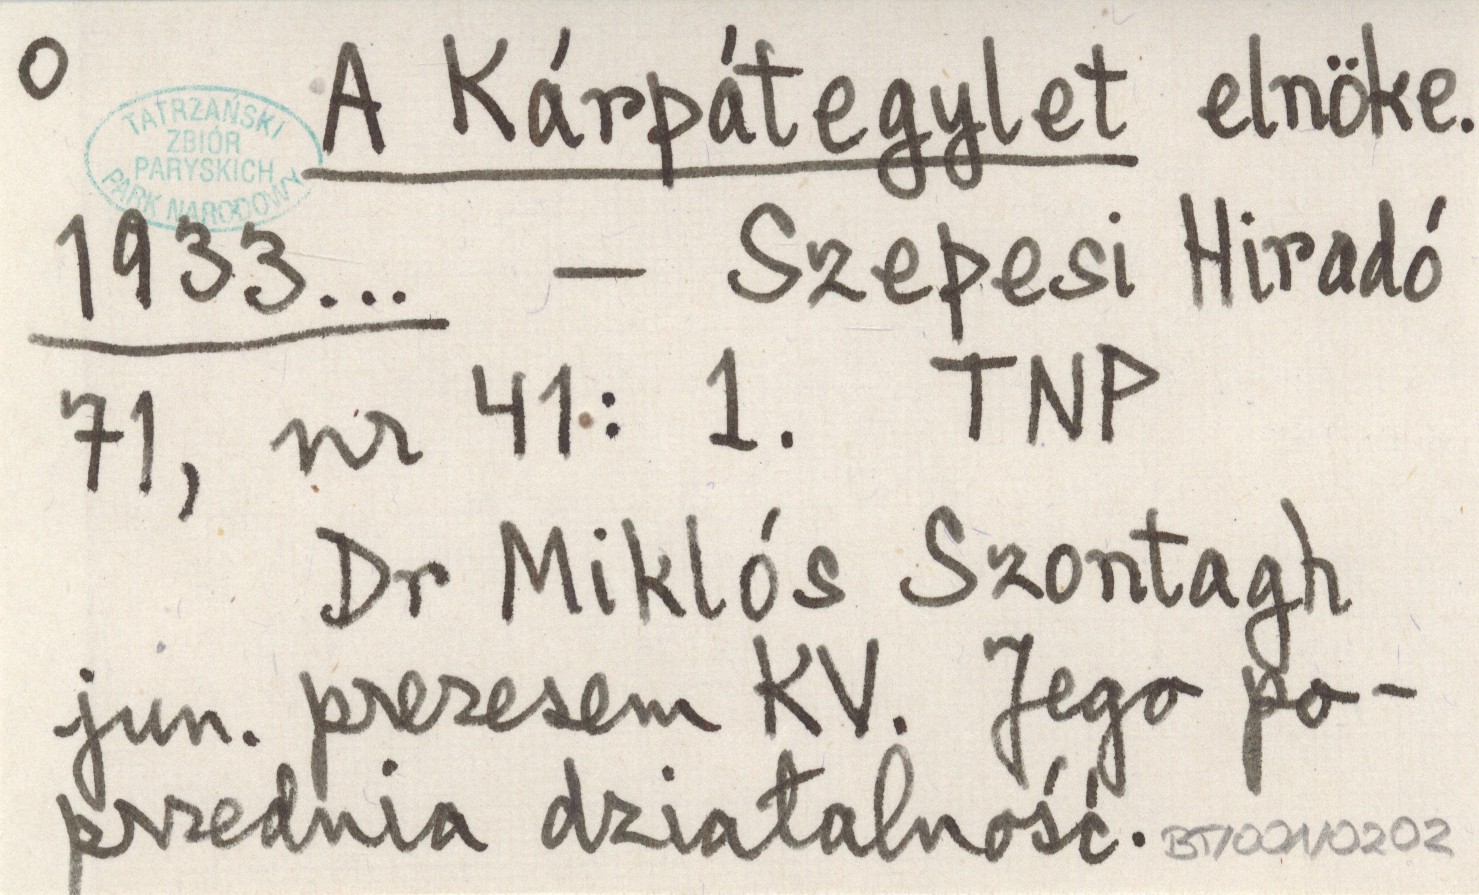 o A Kárpátegylet elnöke.
TATRZAŃSKI
ZBIÓR
PARYSKICH
PARK NARODOWY
1933... — Szepesi Hiradó
71, nr 41: 1. TNP
Dr Miklós Szontagh
jun. prezesem KV. Jego po-
przednia działalność.
BT/001/0202